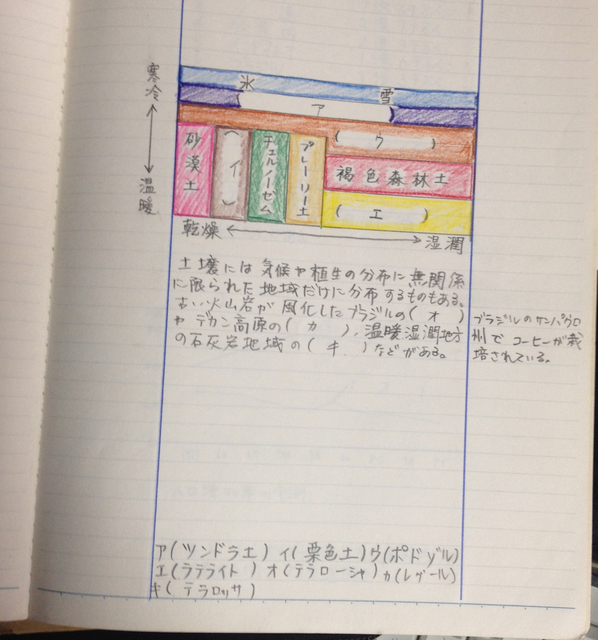 氷 雪
ア
寒冷 ↕ 温暖
砂漠土
(イ)
チェルノーゼム
プレーリー土
(ウ)
褐色森林土
(エ)
乾燥 ←→ 湿潤
土壌には気候や植生の分布に無関係
に限られた地域だけに分布するものもある。
古い火山岩が風化したブラジルの(オ)
やデカン高原の(カ)、温暖湿潤地方
の石灰岩地域の(キ)などがある。
ブラジルのサンパウロ
州でコーヒーが栽
培されている。
ア(ツンドラ土) イ(栗色土) ウ(ポドゾル)
エ(ラテライト) オ(テラローシャ) カ(レグール)
キ(テラロッサ)